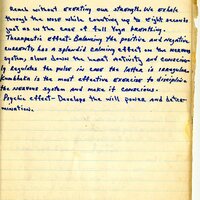 reach without exerting our strength. We exhale
through the nose while counting up to eight seconds
just as in the case of full Yoga breathing.
Therapeutic effect - Balancing the positive and negative
currents has a splendid calming effect on the nervous
system, slows down the heart activity and conscious-
ly regulates the pulse in case the latter is irregular.
Kumbhaka is the most effective exercise to discipline
the nervous system and make it conscious.
Psychic effect - Develops the will power and deter-
mination.